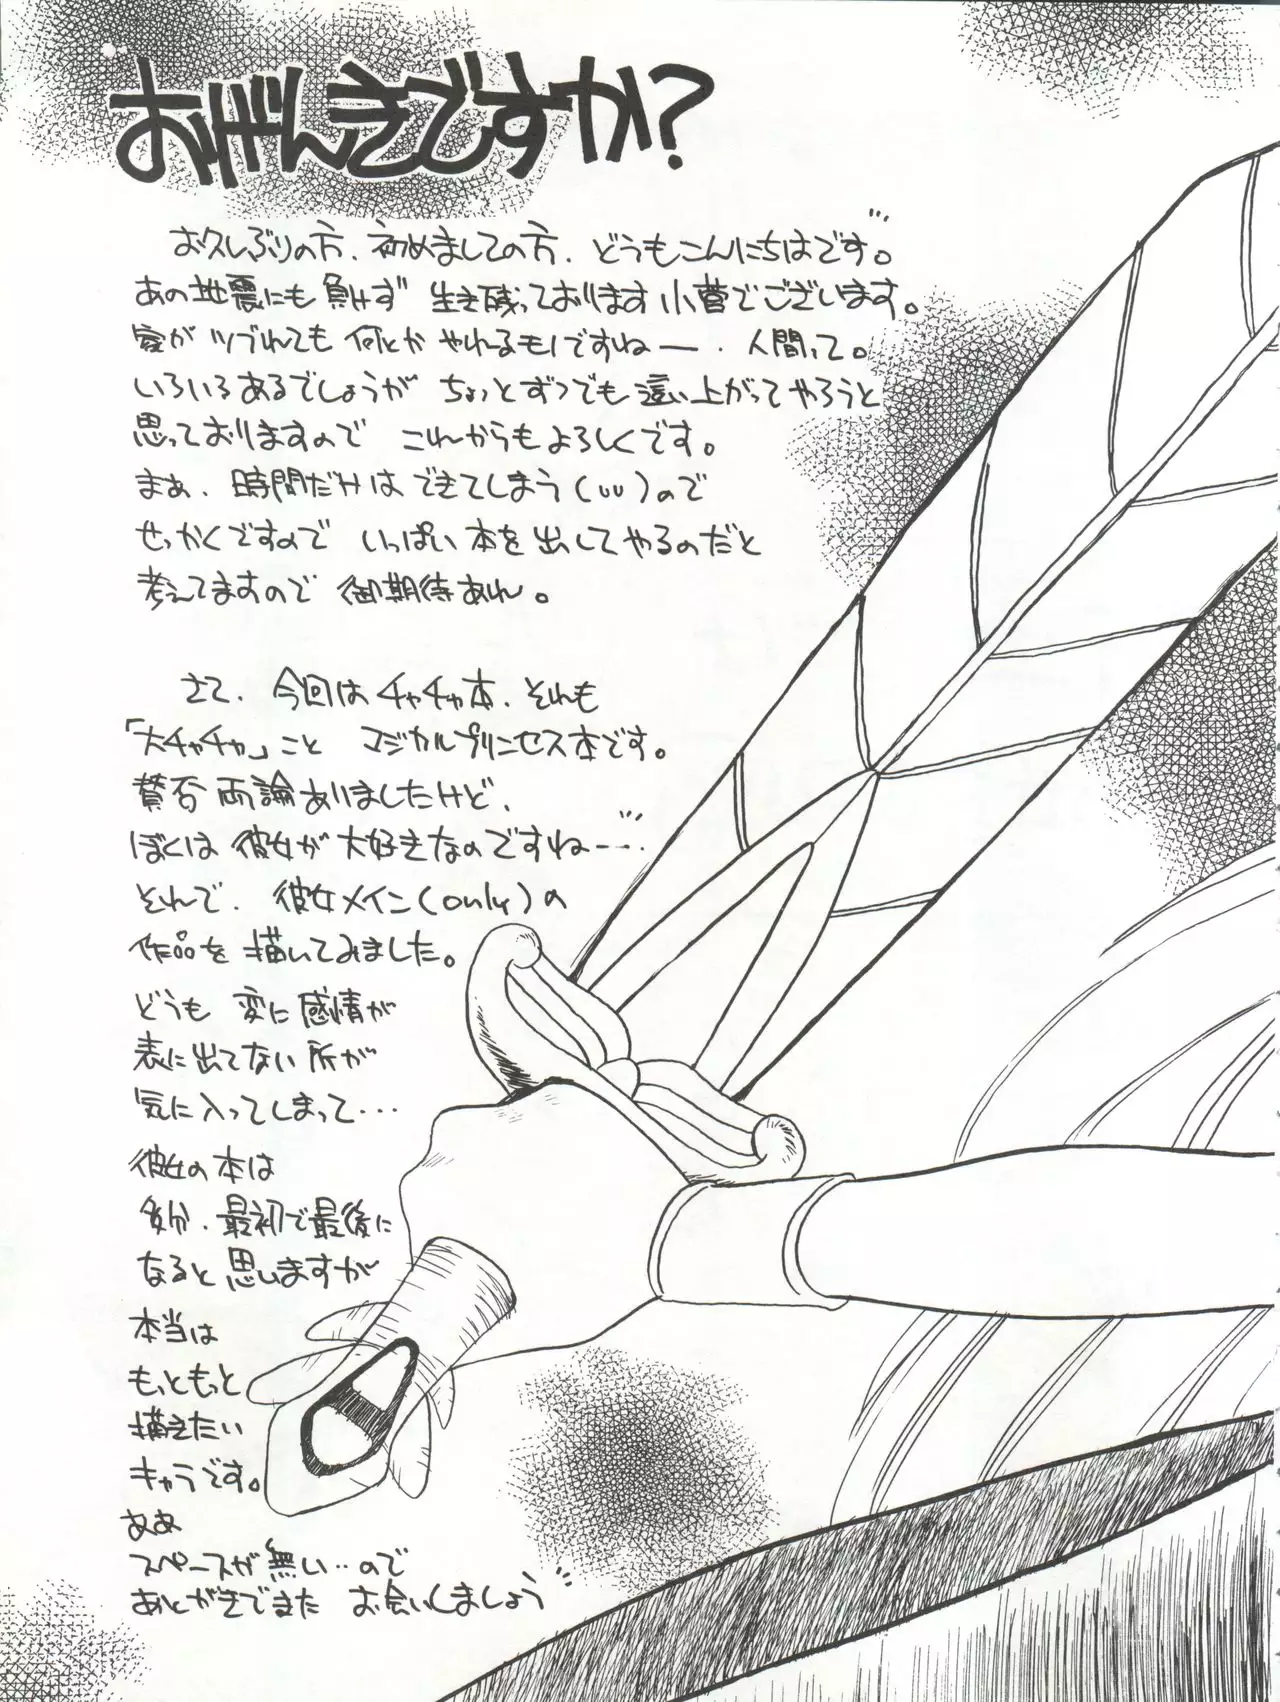 おげんきですか?
お久しぶりの方、初めましての方、どうもこんにちはです。
あの地震にも負けず 生き残っております小菅でございます。
家がツブれても 何とか やれるもんですねー、人間って。
いろいろあるでしょうが ちょっとずつでも這い上がってやろうと
思っておりますので これからもよろしくです。
まぁ、時間だけは できてしまう(‥)ので
せっかくですので いっぱい 本を 出してやるのだと
考えてますので 御期待あれ。
さて、今回は チャチャ本、それも
「大チャチャ」こと マジカルプリンセス本です。
賛否両論ありましたけど、
ぼくは 彼女が 大好きなのですねー…
それで、彼女メイン(only)の
作品を 描いてみました。
どうも 変に 感情が
表に出てない 所が
気に入ってしまって…
彼女の本は
多分、最初で最後に
なると思いますが
本当は
もっともっと
描きたい
キャラです。
ああ
スペースが無い‥ので
あとがきでまた お会いしましょう